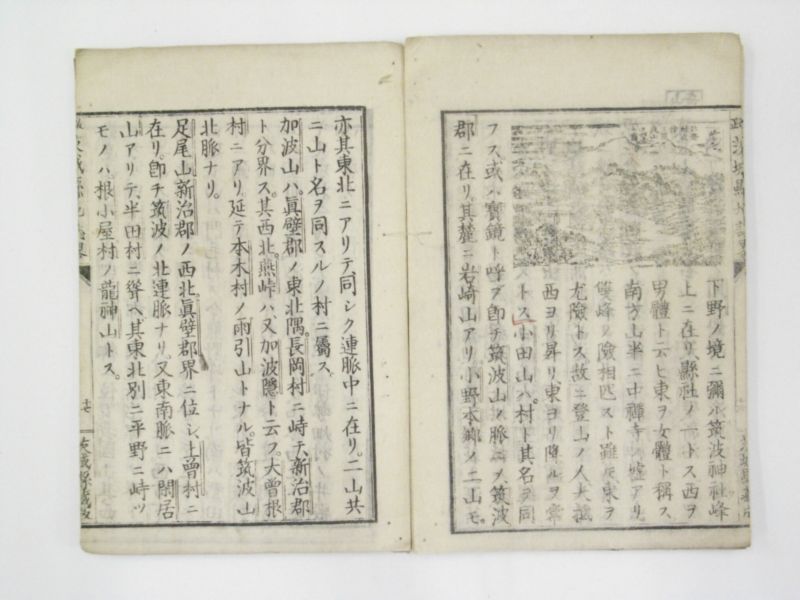 下野ノ境ニ彌ル筑波神社峰
上ニ在リ、縣社ノ一トス西ヲ
男體ト云ヒ東ヲ女體ト稱ス
南方山半ニ中禪寺ノ墟アリ
雙峰ノ險相匹スト雖𪜈東ヲ
尤險トス故ニ登山ノ人大抵
西ヨリ昇リ東ヨリ降ルヲ常
トス小田山ハ村ト其名ヲ同
フス或ハ寶鏡ト呼ブ卽チ筑波山ノ脈ニノ筑波
郡ニ在リ其麓ニ岩崎山アリ小野本郷ノ二山モ
亦其東北ニアリテ同シク連脈中ニ在リ。二山共
ニ山ト名ヲ同スルノ村ニ屬ス
加波山ハ眞壁郡ノ東北隅長岡村ニ峙テ新治郡
ト分界ス。其西北燕峠ハ又加波隱ト云フ大曾根
村ニアリ延テ本木村ノ雨引山トナル皆筑波山
北脈ナリ。
足尾山新治郡ノ西北眞壁郡界ニ位シ上曾村ニ
在リ卽チ筑波ノ北連脈ナリ又東南脈ニハ閑居
山アリテ半田村ニ聳ヘ其東北別ニ平野ニ峙ツ
モノハ根小屋村ノ龍神山トス。